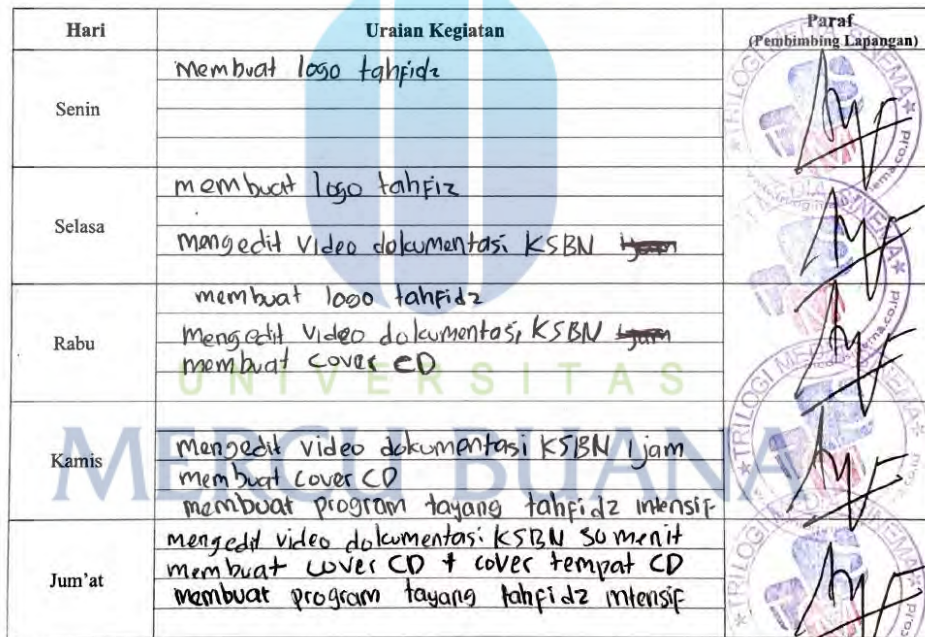 Hari Uraian Kegiatan Paraf
(Pembimbing Lapangan)
Senin
membuat logo tahfidz
Selasa
membuat logo tahfiz
mengedit video dokumentasi KSBN
Rabu
membuat logo tahfidz
mengedit video dokumentasi KSBN
membuat cover CD
UNIVERSITAS
MERCU BUANA
Kamis
mengedit video dokumentasi KSBN 1 jam
membuat cover CD
membuat program tayang tahfidz intensif
Jum'at
mengedit video dokumentasi KSBN 30 menit
membuat cover CD + cover tempat CD
membuat program tayang tahfidz intensif